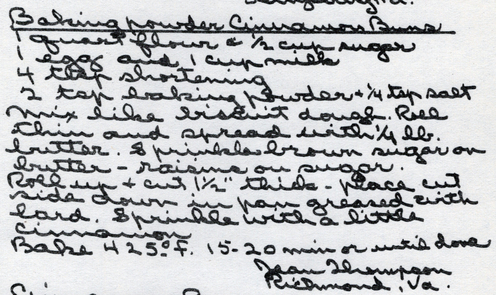 Baking powder Cinnamon Buns
1 quart flour & 1/2 cup sugar
1 egg and 1 cup milk
4 tbsp shortening
2 tsp baking powder + 1/4 tsp salt
Mix like biscuit dough. Roll
thin and spread with 1/4 lb.
butter. Sprinkle brown sugar on
butter - raisins on sugar.
Roll up & cut 1 1/2" thick - place cut
side down in pan greased with
lard. Sprinkle with a little
cinnamon
Bake 425° F. 15-20 min or until done
Jean Thompson
Richmond, Va.